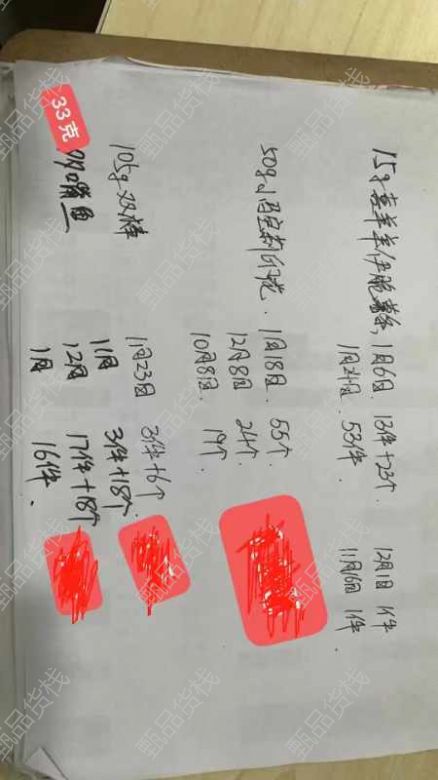 15g喜羊羊 1月6日. 13件+23个. 12月1日 1件
1月24日. 53件. 11月16日 1件
50g 1月18日. 55个
12月8日 24个
10月8日. 19个.
105g双棒 1月23日 3件+6个
11月 3件+18个
33克
嘴鱼 12月 17件+18个
1月 16件.
甄品货栈